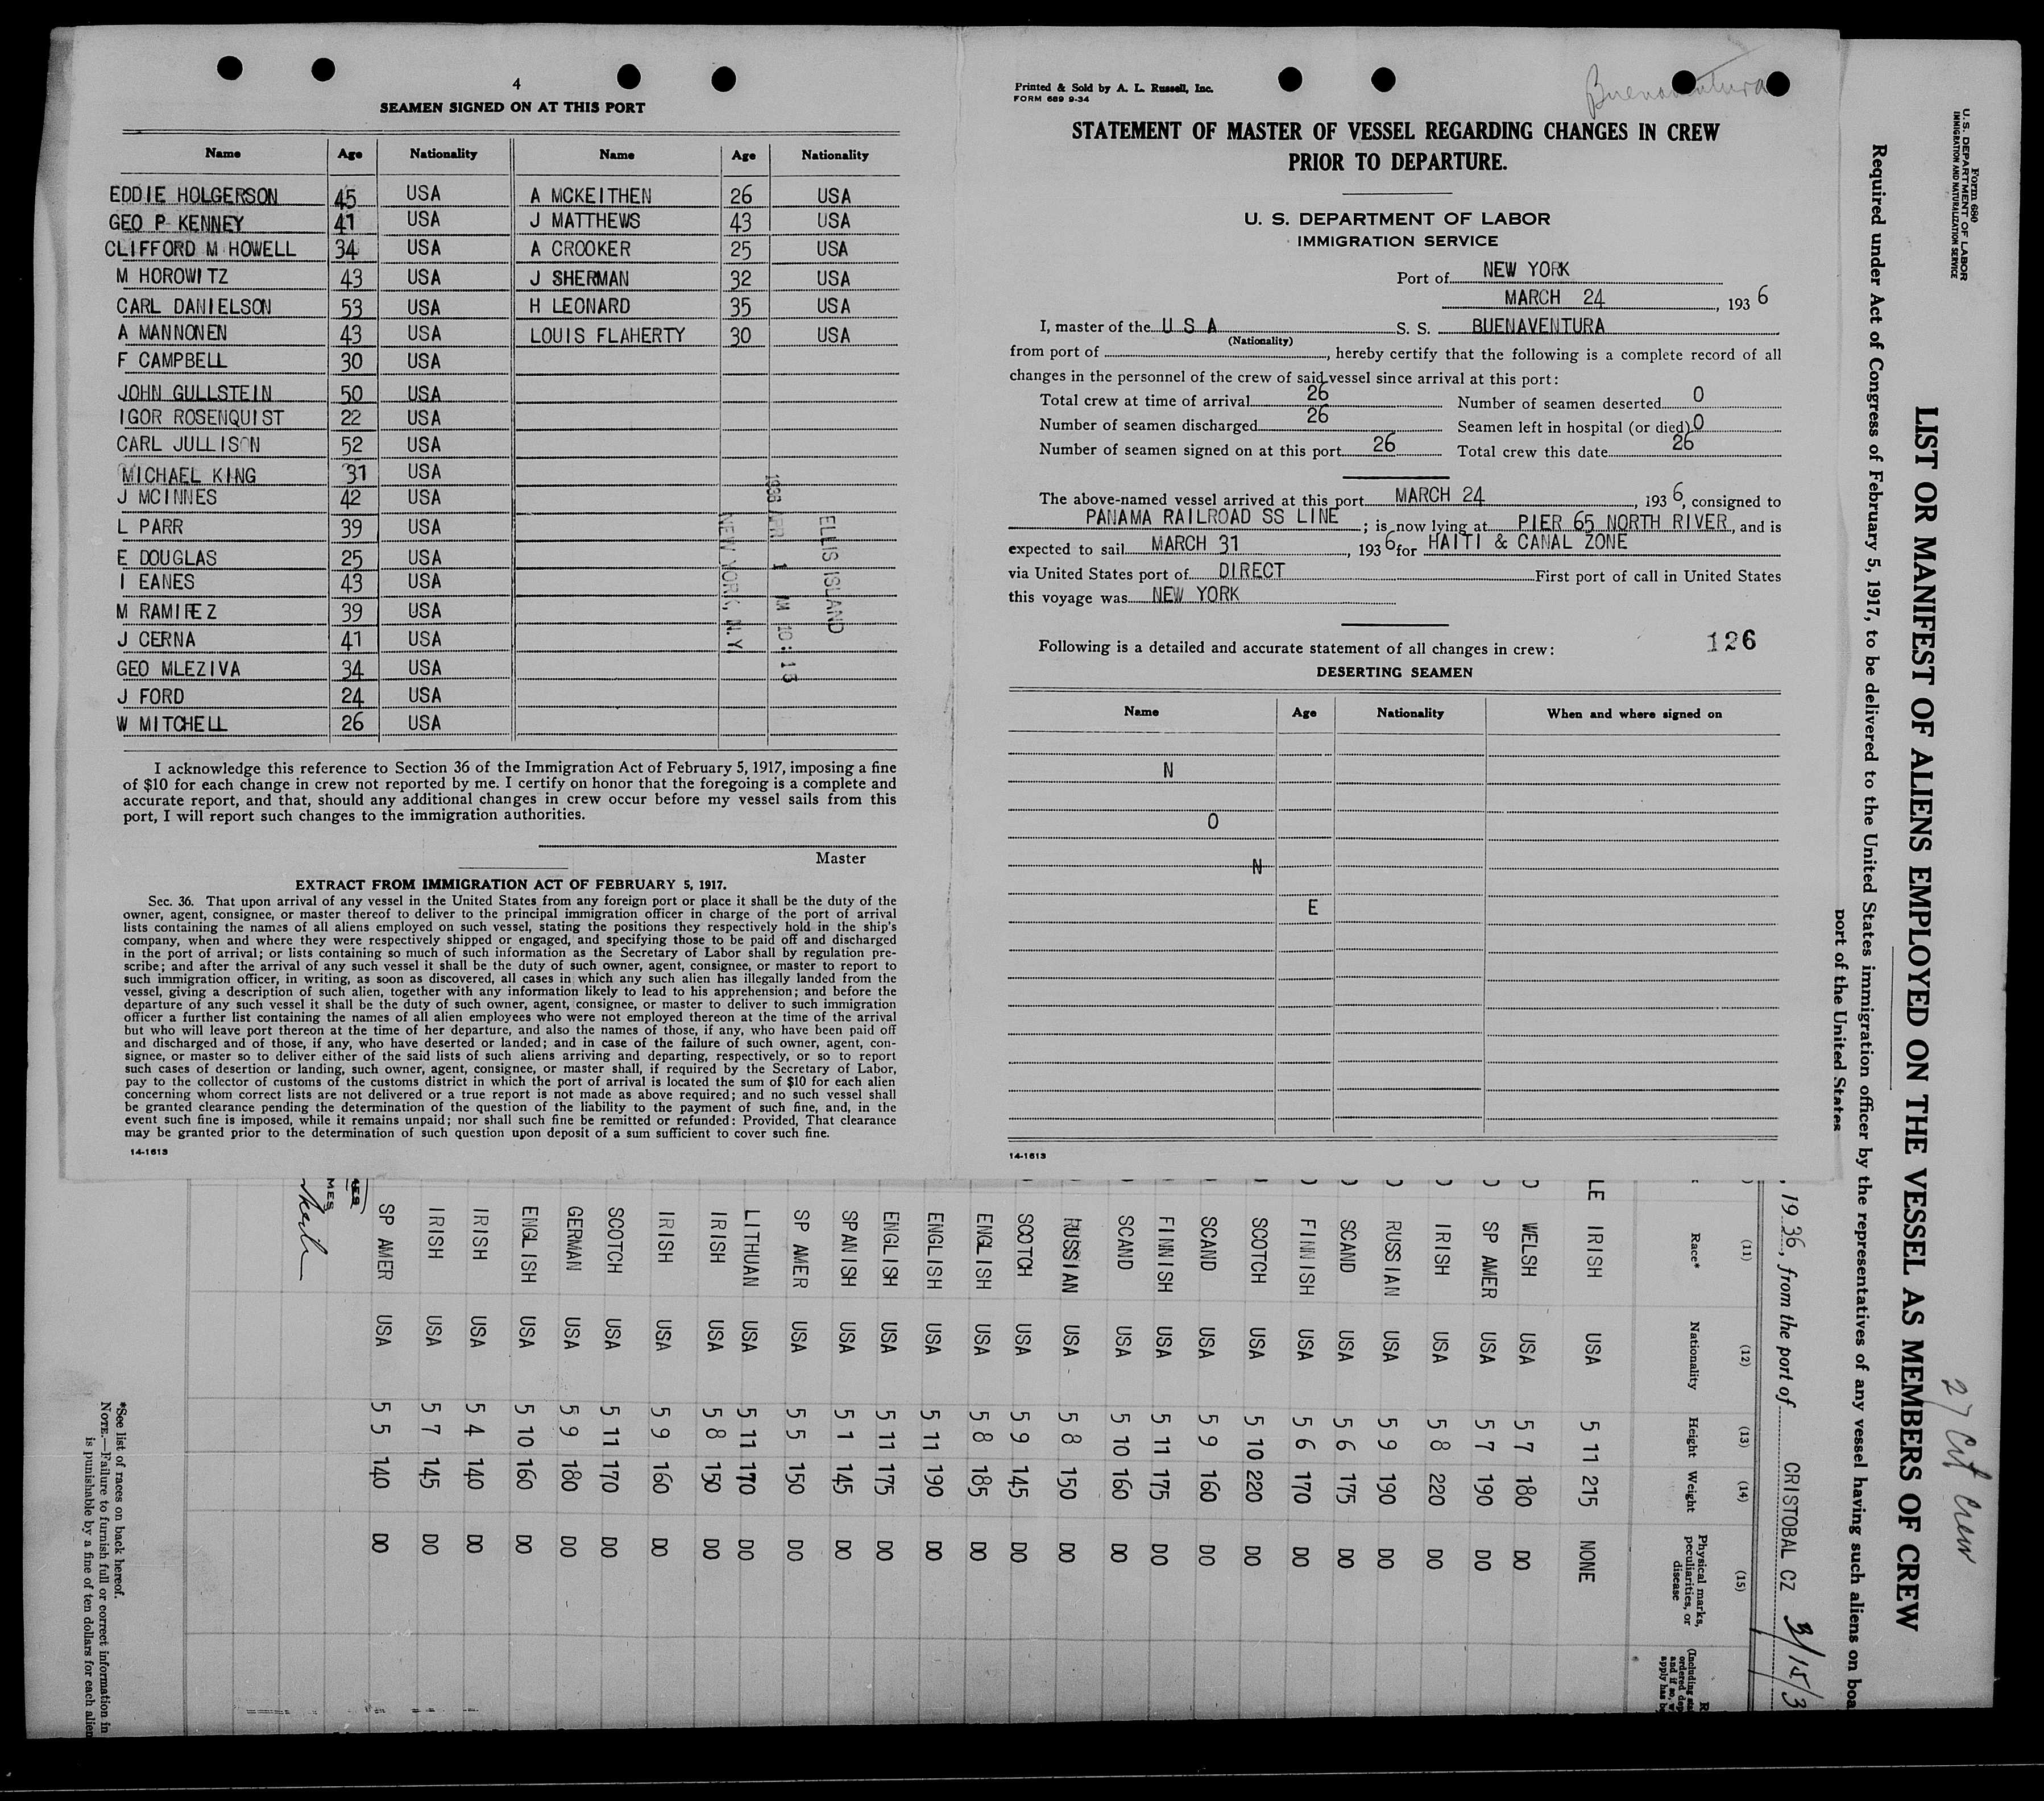 4
SEAMEN SIGNED ON AT THIS PORT
Name Age Nationality Name Age Nationality
EDDIE HOLGERSON 45 USA A MCKEITHEN 26 USA
GEO P KENNEY 41 USA J MATTHEWS 43 USA
CLIFFORD M HOWELL 34 USA A CROOKER 25 USA
M HOROWITZ 43 USA J SHERMAN 32 USA
CARL DANIELSON 53 USA H LEONARD 35 USA
A MANNONEN 43 USA LOUIS FLAHERTY 30 USA
F CAMPBELL 30 USA
JOHN GULLSTEIN 50 USA
IGOR ROSENQUIST 22 USA
CARL JULLISON 52 USA
MICHAEL KING 31 USA
J MCINNES 42 USA
L PARR 39 USA
E DOUGLAS 25 USA
I EANES 43 USA
M RAMIREZ 39 USA
J CERNA 41 USA
GEO MLEZIVA 34 USA
J FORD 24 USA
W MITCHELL 26 USA
ELLIS ISLAND
1936 APR 1 AM 10:13
NEW YORK, N.Y.
I acknowledge this reference to Section 36 of the Immigration Act of February 5, 1917, imposing a fine
of $10 for each change in crew not reported by me. I certify on honor that the foregoing is a complete and
accurate report, and that, should any additional changes in crew occur before my vessel sails from this
port, I will report such changes to the immigration authorities.
Master
EXTRACT FROM IMMIGRATION ACT OF FEBRUARY 5, 1917.
Sec. 36. That upon arrival of any vessel in the United States from any foreign port or place it shall be the duty of the
owner, agent, consignee, or master thereof to deliver to the principal immigration officer in charge of the port of arrival
lists containing the names of all aliens employed on such vessel, stating the positions they respectively hold in the ship's
company, when and where they were respectively shipped or engaged, and specifying those to be paid off and discharged
in the port of arrival; or lists containing so much of such information as the Secretary of Labor shall by regulation pre-
scribe; and after the arrival of any such vessel it shall be the duty of such owner, agent, consignee, or master to report to
such immigration officer, in writing, as soon as discovered, all cases in which any such alien has illegally landed from the
vessel, giving a description of such alien, together with any information likely to lead to his apprehension; and before the
departure of any such vessel it shall be the duty of such owner, agent, consignee, or master to deliver to such immigration
officer a further list containing the names of all alien employees who were not employed thereon at the time of the arrival
but who will leave port thereon at the time of her departure, and also the names of those, if any, who have been paid off
and discharged and of those, if any, who have deserted or landed; and in case of the failure of such owner, agent, con-
signee, or master so to deliver either of the said lists of such aliens arriving and departing, respectively, or so to report
such cases of desertion or landing, such owner, agent, consignee, or master shall, if required by the Secretary of Labor,
pay to the collector of customs of the customs district in which the port of arrival is located the sum of $10 for each alien
concerning whom correct lists are not delivered or a true report is not made as above required; and no such vessel shall
be granted clearance pending the determination of the question of the liability to the payment of such fine, and, in the
event such fine is imposed, while it remains unpaid; nor shall such fine be remitted or refunded: Provided, That clearance
may be granted prior to the determination of such question upon deposit of a sum sufficient to cover such fine.
14-1613
Printed & Sold by A. L. Russell, Inc.
FORM 689 9-34
Buenaventura
STATEMENT OF MASTER OF VESSEL REGARDING CHANGES IN CREW
PRIOR TO DEPARTURE.
U. S. DEPARTMENT OF LABOR
IMMIGRATION SERVICE
Port of NEW YORK
MARCH 24, 1936
I, master of the U S A S. S. BUENAVENTURA
(Nationality)
from port of , hereby certify that the following is a complete record of all
changes in the personnel of the crew of said vessel since arrival at this port:
Total crew at time of arrival 26 Number of seamen deserted 0
Number of seamen discharged 26 Seamen left in hospital (or died) 0
Number of seamen signed on at this port 26 Total crew this date 26
The above-named vessel arrived at this port MARCH 24, 1936, consigned to
PANAMA RAILROAD SS LINE; is now lying at PIER 65 NORTH RIVER, and is
expected to sail MARCH 31, 1936 for HAITI & CANAL ZONE
via United States port of DIRECT First port of call in United States
this voyage was NEW YORK
Following is a detailed and accurate statement of all changes in crew: 126
DESERTING SEAMEN
Name Age Nationality When and where signed on
N
O
N
E
14-1613
Form 680
U. S. DEPARTMENT OF LABOR
IMMIGRATION AND NATURALIZATION SERVICE
27 Cit Crew
LIST OR MANIFEST OF ALIENS EMPLOYED ON THE VESSEL AS MEMBERS OF CREW
Required under Act of Congress of February 5, 1917, to be delivered to the United States immigration officer by the representatives of any vessel having such aliens on boa
port of the United States
, 1936, from the port of CRISTOBAL CZ 3/15/3
(11) (12) (13) (14) (15)
Race* Nationality Height Weight Physical marks, peculiarities, or disease
LE IRISH USA 5 11 215 NONE
WELSH USA 5 7 180 DO
SP AMER USA 5 7 190 DO
IRISH USA 5 8 220 DO
RUSSIAN USA 5 9 190 DO
SCAND USA 5 6 175 DO
FINNISH USA 5 6 170 DO
SCOTCH USA 5 10 220 DO
SCAND USA 5 9 160 DO
FINNISH USA 5 11 175 DO
SCAND USA 5 10 160 DO
RUSSIAN USA 5 8 150 DO
SCOTCH USA 5 9 145 DO
ENGLISH USA 5 8 185 DO
ENGLISH USA 5 11 190 DO
ENGLISH USA 5 11 175 DO
SPANISH USA 5 1 145 DO
SP AMER USA 5 5 150 DO
LITHUAN USA 5 11 170 DO
IRISH USA 5 8 150 DO
IRISH USA 5 9 160 DO
SCOTCH USA 5 11 170 DO
GERMAN USA 5 9 180 DO
ENGLISH USA 5 10 160 DO
IRISH USA 5 4 140 DO
IRISH USA 5 7 145 DO
SP AMER USA 5 5 140 DO
MES
*See list of races on back hereof.
NOTE.—Failure to furnish full or correct information in
is punishable by a fine of ten dollars for each alien